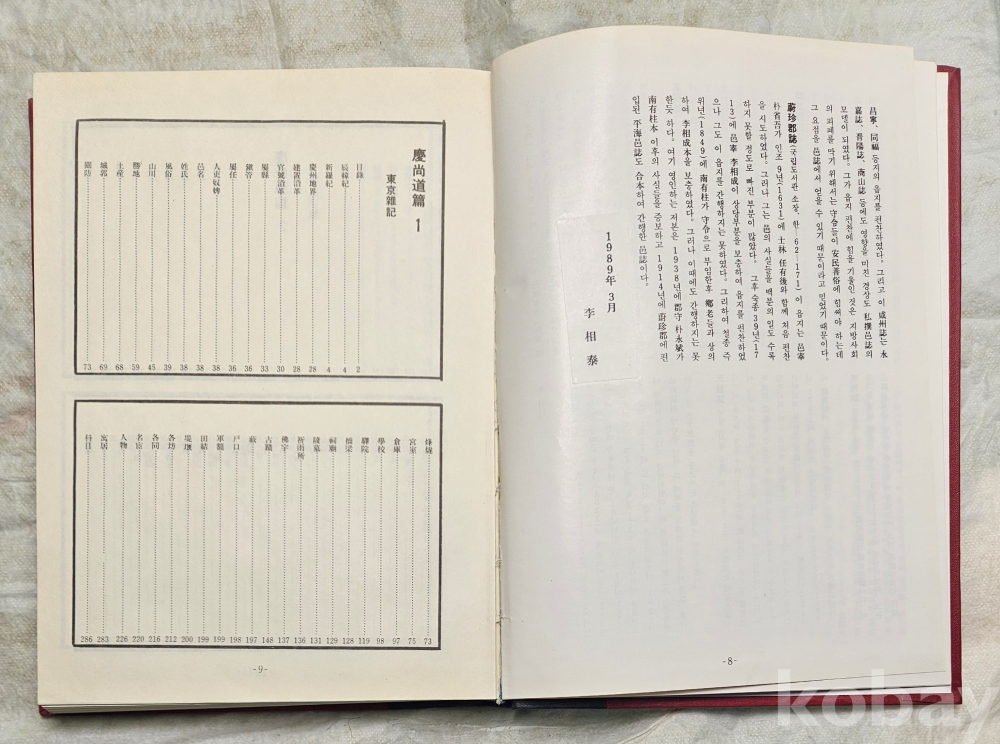 昌寧、同福 등지의 읍지를 편찬하였다. 그리고 이 咸州誌는 永
嘉誌、晋陽誌、商山誌 등에도 영향을 미친 경상도 私撰邑誌의
모델이 되었다. 그가 읍지 편찬에 힘을 기울인 것은 지방사회
의 피폐를 막기 위해서는 守令들이 安民善俗에 힘써야 하는데
그 요점을 邑誌에서 얻을 수 있기 때문이라고 믿었기 때문이다.
蔚珍郡誌(국립도서관 소장, 한 62-171) 이 읍지는 邑宰
朴省吾가 인조 9년(1631)에 士林 任有後와 함께 처음 편찬
을 시도하였다. 그러나 그는 邑의 사실들을 백분의 일도 수록
하지 못할 정도로 빠진 부분이 많았다. 그후 숙종 39년(17
13)에 邑宰 李相成이 상당부분을 보충하여 읍지를 편찬하였
으나 그도 이 읍지를 간행하지는 못하였다. 그리하여 철종 즉
위년(1849)에 南有柱가 守令으로 부임한후 鄕老들과 상의
하여 李相成本을 보충하였다. 그러나 이때에도 간행하지는 못
한듯 하다. 여기 영인하는 저본은 1938년에 郡守 朴永斌가
南有柱本 이후의 사실들을 증보하고 1914년에 蔚珍郡에 편
입된 平海邑誌도 合本하여 간행한 邑誌이다.
1989年 3月
李相泰
-8-
慶尚道篇 1
東京雜記
目錄 2
辰韓紀 4
新羅紀 4
慶州地界 28
建置沿革 28
官號沿革 30
屬縣 33
鎭管 36
屬任 38
人吏奴婢 38
邑名 38
姓氏 38
風俗 39
山川 45
勝地 59
土産 68
城郭 69
關防 73
烽燧 73
宮室 75
倉庫 97
學校 98
驛院 119
橋梁 128
祠廟 129
陵墓 131
祈雨所 136
佛宇 137
古蹟 148
藪 197
戶口 198
軍額 199
田結 199
堤堰 200
各坊 212
各同 216
名宦 220
人物 226
寓居 283
科目 286
-9-
kobay